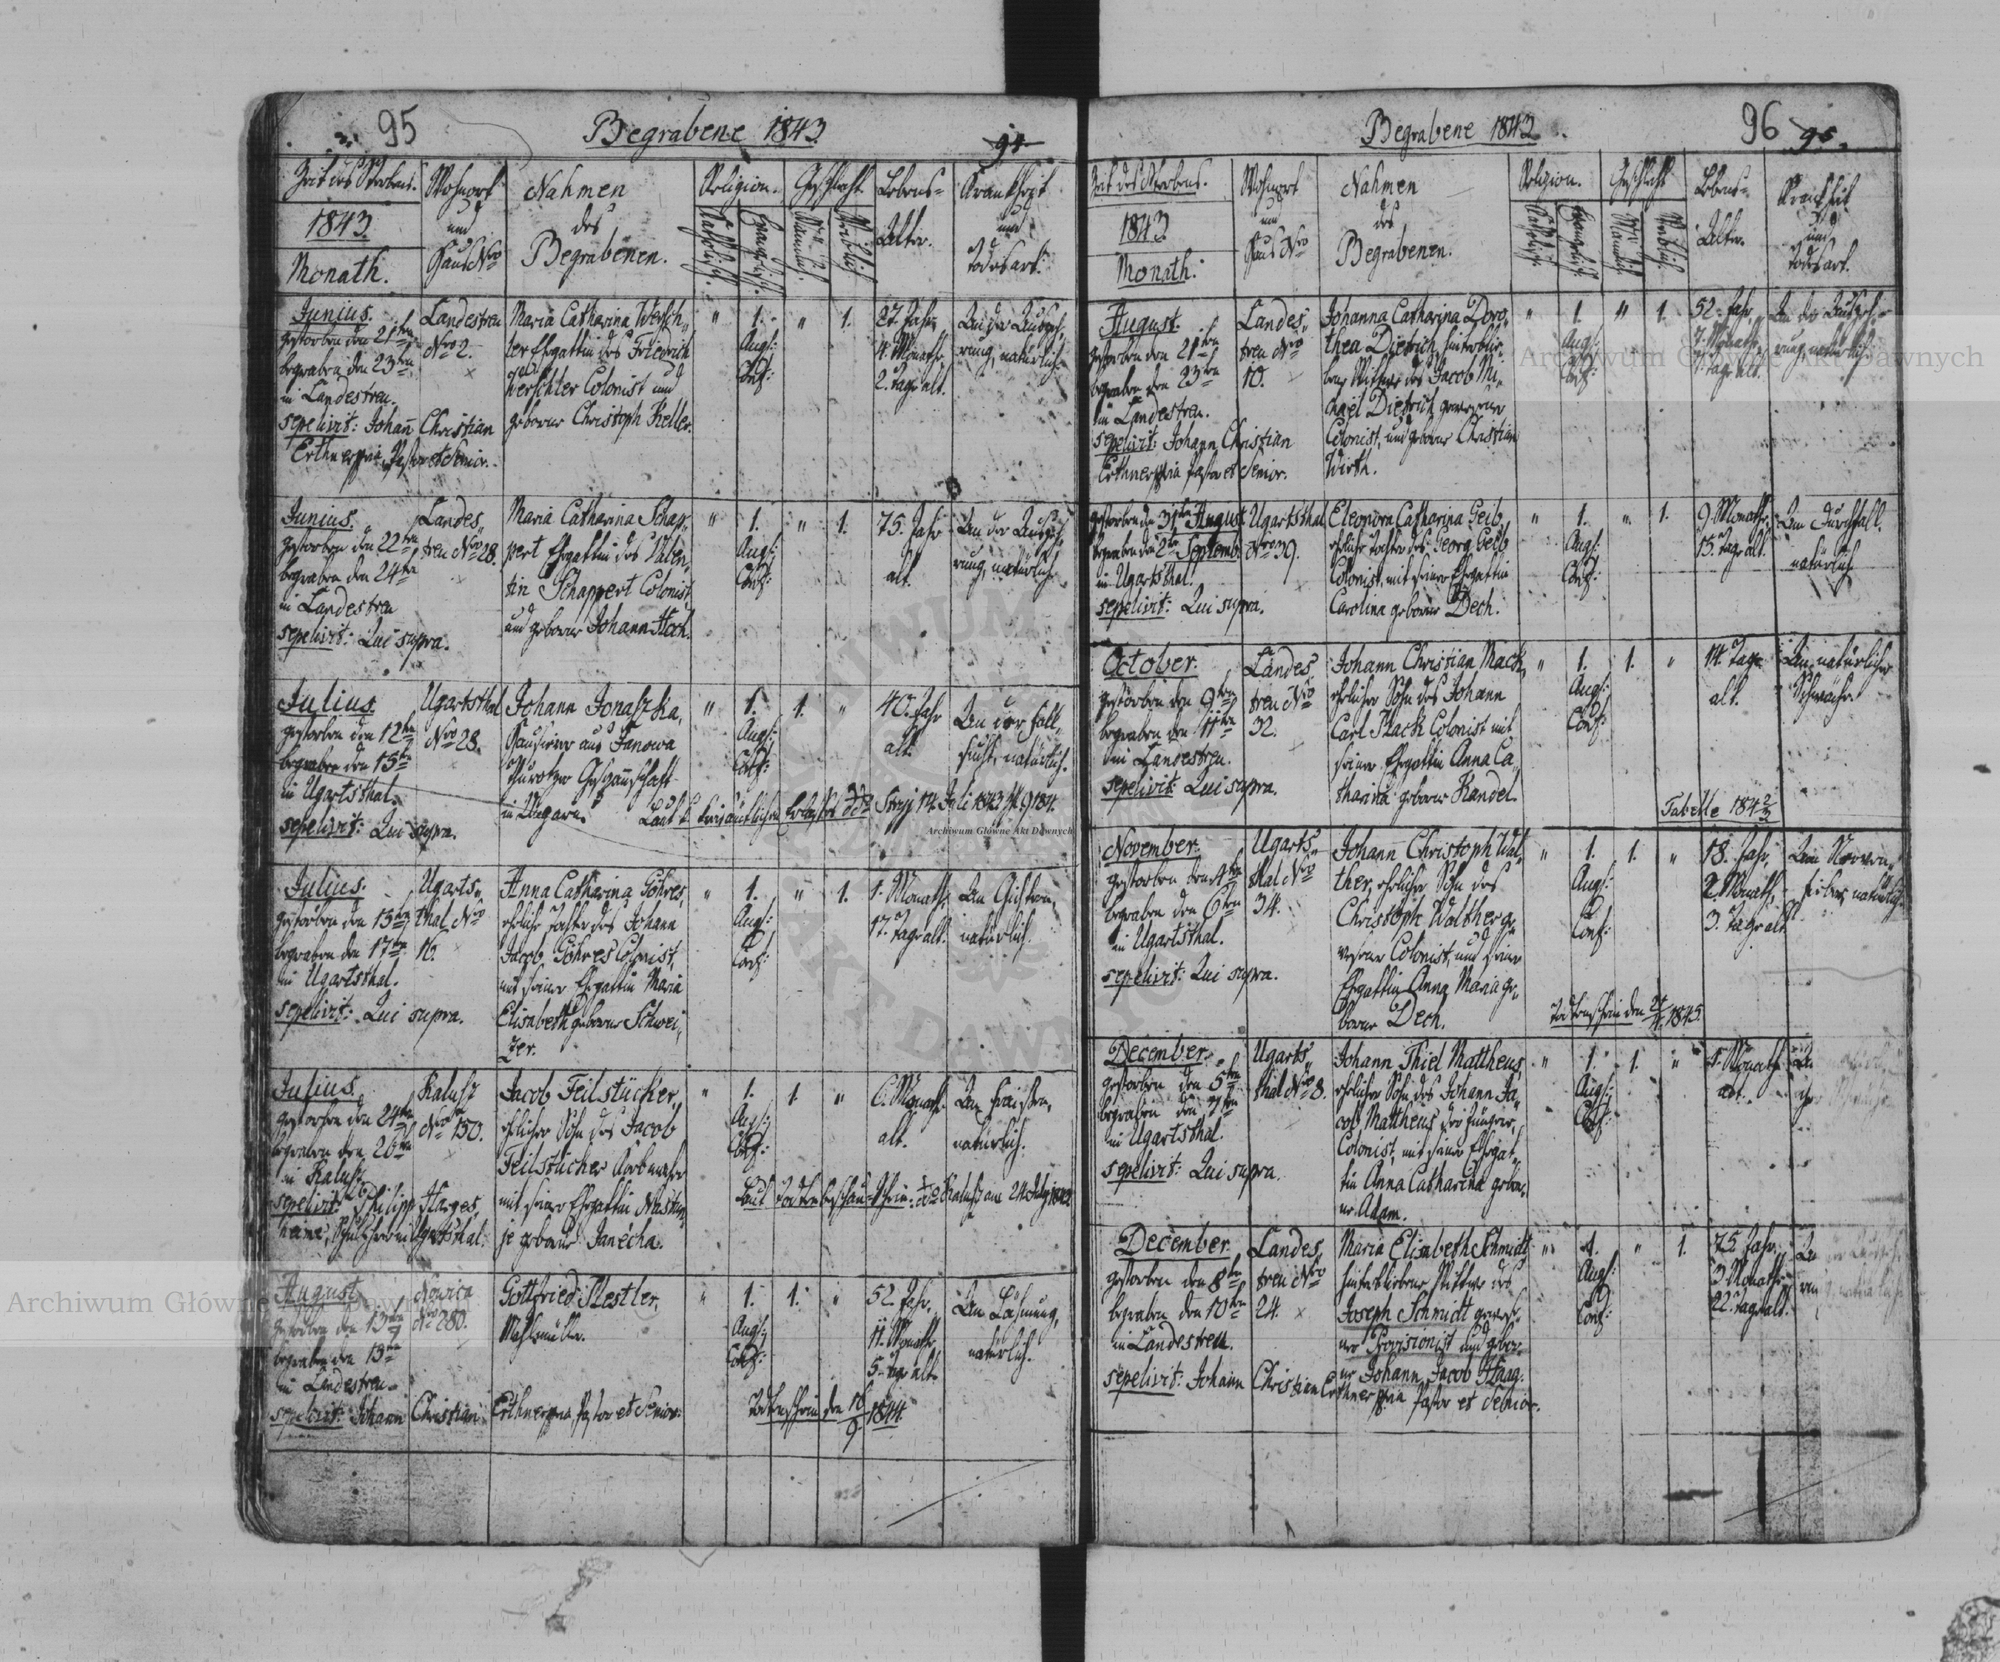 95
Begrabene 1843.
94
Zeit des Sterbens.
1843.
Monath.
Wohnort
und
Haus Nro
Nahmen
des
Begrabenen.
Religion.
Katholisch.
Evangelisch.
Geschlecht.
Männlich.
Weiblich.
Lebens-
Alter.
Krankheit
und
Todesart.
Junius.
gestorben den 21ten
begraben den 23ten
in Landestreu.
sepelivit: Johann Christian
Erthner, Pastor et Senior.
Landestreu
Nro 2.
Maria Catharina Wersch-
ler Ehegattin des Friedrich
Werschler Colonist und
geborne Christoph Keller.
" 1. " 1.
Augs:
Conf:
27. Jahr
4. Monath
2. Tage alt.
An der Auszeh-
rung, natürlich.
Junius.
gestorben den 22ten
begraben den 24ten
in Landestreu
sepelivit: Qui supra.
Landes-
treu Nro 28.
Maria Catharina Schap-
pert Ehegattin des Valen-
tin Schappert Colonist
und geborne Johann Koch.
" 1. " 1.
Augs:
Conf:
75. Jahr
alt.
An der Auszeh-
rung, natürlich.
Julius.
gestorben den 12ten
begraben den 15ten
in Ugartsthal.
sepelivit: Qui supra.
Ugartsthal
Nro 28.
Johann Jonaszka,
Hausierer aus Janowa
Thurotzer Gespannschaft
in Ungarn.
" 1. 1. "
Augs:
Conf:
40. Jahr
alt.
An der Fall-
sucht, natürlich.
Stryj 14. Juli 1843
Julius.
gestorben den 15ten
begraben den 17ten
in Ugartsthal.
sepelivit: Qui supra.
Ugarts-
thal Nro
16.
Anna Catharina Göhres,
ehliche Tochter des Johann
Jacob Göhres Colonist,
mit seiner Ehegattin Maria
Elisabeth geborne Schwei-
zer.
" 1. " 1.
Augs:
Conf:
1. Monath
17. Tage alt.
An Gichtern,
natürlich.
Julius.
gestorben den 24ten
begraben den 26ten
in Kalusz.
sepelivit: Philipp Harges-
heimer, Schullehrer in Ugartsthal.
Kalusz
Nro 150.
Jacob Feilstücher,
ehlicher Sohn des Jacob
Feilstücher Korbmacher
mit seiner Ehegattin
geborne Janécha.
" 1. 1. "
Augs:
Conf:
6. Monath
alt.
An Fraisen,
natürlich.
Laut Todtenbeschau-Schein
August
gestorben den 13ten
begraben den 15ten
in Landestreu.
sepelivit: Johann Christian Erthner, Pastor et Senior.
Nowica
Nro 280.
Gottfried Nestler,
Mahlmüller.
" 1. 1. "
Augs:
Conf:
52. Jahr,
11. Monath
5. Tage alt.
An Lähmung,
natürlich.
Todtenschein den 16/9 1844.
Begrabene 1843.
96
95.
Zeit des Sterbens.
1843.
Monath.
Wohnort
und
Haus Nro
Nahmen
des
Begrabenen.
Religion.
Katholisch.
Evangelisch.
Geschlecht
Männlich.
Weiblich.
Lebens-
Alter.
Krankheit
und
Todesart.
August.
gestorben den 21ten
begraben den 23ten
in Landestreu.
sepelivit: Johann Christian
Erthner, Pastor et Senior.
Landes-
treu Nro
10.
Johanna Catharina Doro-
thea Dietrich, hinterblie-
bene Wittwe des Jacob Mi-
chael Dietrich gewesener
Colonist, und geborne Christian
Wirth.
" 1. " 1.
Augs:
Conf:
52. Jahr
7. Monath
7. Tage alt.
An der Auszeh-
rung, natürlich.
gestorben den 31ten August
begraben den 2ten Septemb.
in Ugartsthal.
sepelivit: Qui supra.
Ugartsthal
Nro 39.
Eleonora Catharina Geib,
ehliche Tochter des Georg Geib
Colonist, mit seiner Ehegattin
Carolina geborne Dech.
" 1. " 1.
Augs:
Conf:
9. Monath
15. Tage alt.
Am Durchfall,
natürlich.
October.
gestorben den 9ten
begraben den 11ten
in Landestreu.
sepelivit: Qui supra.
Landes-
treu Nro
32.
Johann Christian Mack,
ehlicher Sohn des Johann
Carl Mack Colonist mit
seiner Ehegattin Anna Ca-
tharina geborne Kandel.
" 1. 1. "
Augs:
Conf:
14. Tage
alt.
An natürlicher
Schwäche.
Tabelle 1842/3
November.
gestorben den 4ten
begraben den 6ten
in Ugartsthal.
sepelivit: Qui supra.
Ugarts-
thal Nro
34.
Johann Christoph Wal-
ther, ehlicher Sohn des
Christoph Walther ge-
wesener Colonist, und seiner
Ehegattin Anna Maria ge-
borne Dech.
" 1. 1. "
Augs:
Conf:
18. Jahr,
2. Monath,
3. Tage alt.
Am Nerven-
fieber, natürlich.
Todtenschein den 1845.
December.
gestorben den 5ten
begraben den 7ten
in Ugartsthal.
sepelivit: Qui supra.
Ugarts-
thal Nro 8.
Johann Thiel Mattheus,
ehlicher Sohn des Johann Ja-
cob Mattheus der jüngere,
Colonist, mit seiner Ehegat-
tin Anna Catharina gebor-
ne Adam.
" 1. 1. "
Augs:
Conf:
1. Monath
alt.
An
December.
gestorben den 8ten
begraben den 10ten
in Landestreu.
sepelivit: Johann Christian Erthner, Pastor et Senior.
Landes-
treu Nro
24.
Maria Elisabeth Schmidt
hinterbliebene Wittwe des
Joseph Schmidt gewese-
ner Provisionist und gebor-
ne Johann Jacob Haag.
" 1. " 1.
Augs:
Conf:
75. Jahr,
3. Monath
22. Tage alt.
An
Archiwum Główne Akt Dawnych
Archiwum Główne Akt Dawnych
Archiwum Główne Akt Dawnych